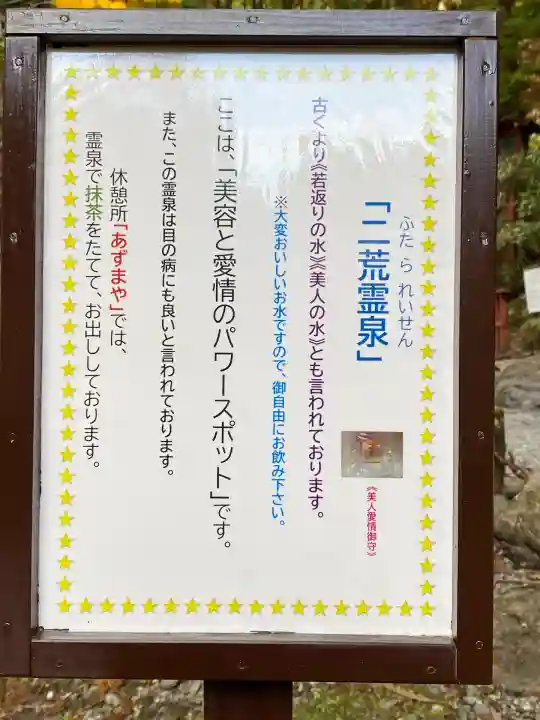 ふたられいせん
「二荒霊泉」
《美人愛情御守》
古くより《若返りの水》《美人の水》とも言われております。
※大変おいしいお水ですので、御自由にお飲み下さい。
ここは、「美容と愛情のパワースポット」です。
また、この霊泉は目の病にも良いと言われております。
休憩所「あずまや」では、
霊泉で抹茶をたてて、お出ししております。